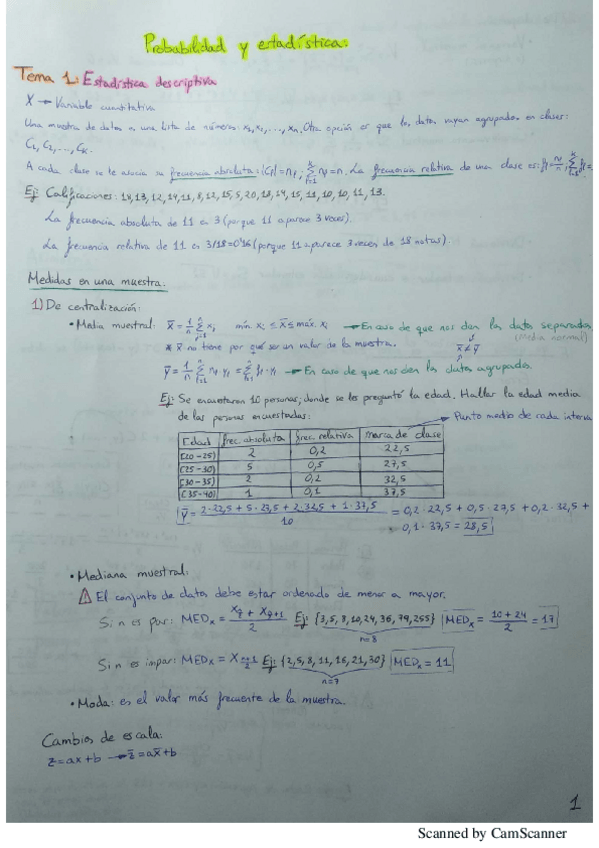 Probabilidad y estadística:
Tema 1: Estadística descriptiva
X → Variable cuantitativa
Una muestra de datos es una lista de números: x₁, x₂, ..., xₙ. Otra opción es que los datos vayan agrupados en clases:
C₁, C₂, ..., Cₖ.
A cada clase se le asocia su frecuencia absoluta: |Cⱼ| = nⱼ; Σ nⱼ = n. La frecuencia relativa de una clase es: fⱼ = nⱼ/n; Σ fⱼ =
Ej: Calificaciones: 14, 13, 12, 14, 11, 8, 12, 15, 5, 20, 18, 14, 15, 11, 10, 10, 11, 13.
La frecuencia absoluta de 11 es 3 (porque 11 aparece 3 veces).
La frecuencia relativa de 11 es 3/18=0'16 (porque 11 aparece 3 veces de 18 notas).
Medidas en una muestra:
1) De centralización:
• Media muestral: x̄ = 1/n Σ xⱼ mín. xᵢ ≤ x̄ ≤ máx. xᵢ → En caso de que nos den los datos separados
(media normal)
* x̄ no tiene por qué ser un valor de la muestra. x̄ ≠ ȳ
ȳ = 1/n Σ nⱼ·yⱼ = Σ fⱼ·yⱼ → En caso de que nos den los datos agrupados.
Ej: Se encuestaron 10 personas, donde se les preguntó la edad. Hallar la edad media
de las personas encuestadas:
Punto medio de cada interva
Edad frec. absoluta frec. relativa marca de clase
[20-25) 2 0,2 22,5
[25-30) 5 0,5 27,5
[30-35) 2 0,2 32,5
[35-40) 1 0,1 37,5
ȳ = (2·22,5 + 5·27,5 + 2·32,5 + 1·37,5)/10 = 0,2·22,5 + 0,5·27,5 + 0,2·32,5 +
0,1·37,5 = 28,5
• Mediana muestral:
⚠ El conjunto de datos debe estar ordenado de menor a mayor.
Si n es par: MEDₓ = (x_{n/2} + x_{n/2+1})/2 Ej: {3,5,8,10,24,36,79,255} MEDₓ = (10+24)/2 = 17
n=8
Si n es impar: MEDₓ = x_{(n+1)/2} Ej: {2,5,8,11,16,21,30} MEDₓ = 11
n=7
• Moda: es el valor más frecuente de la muestra.
Cambios de escala:
z=ax+b → z̄=ax̄+b
1
Scanned by CamScanner